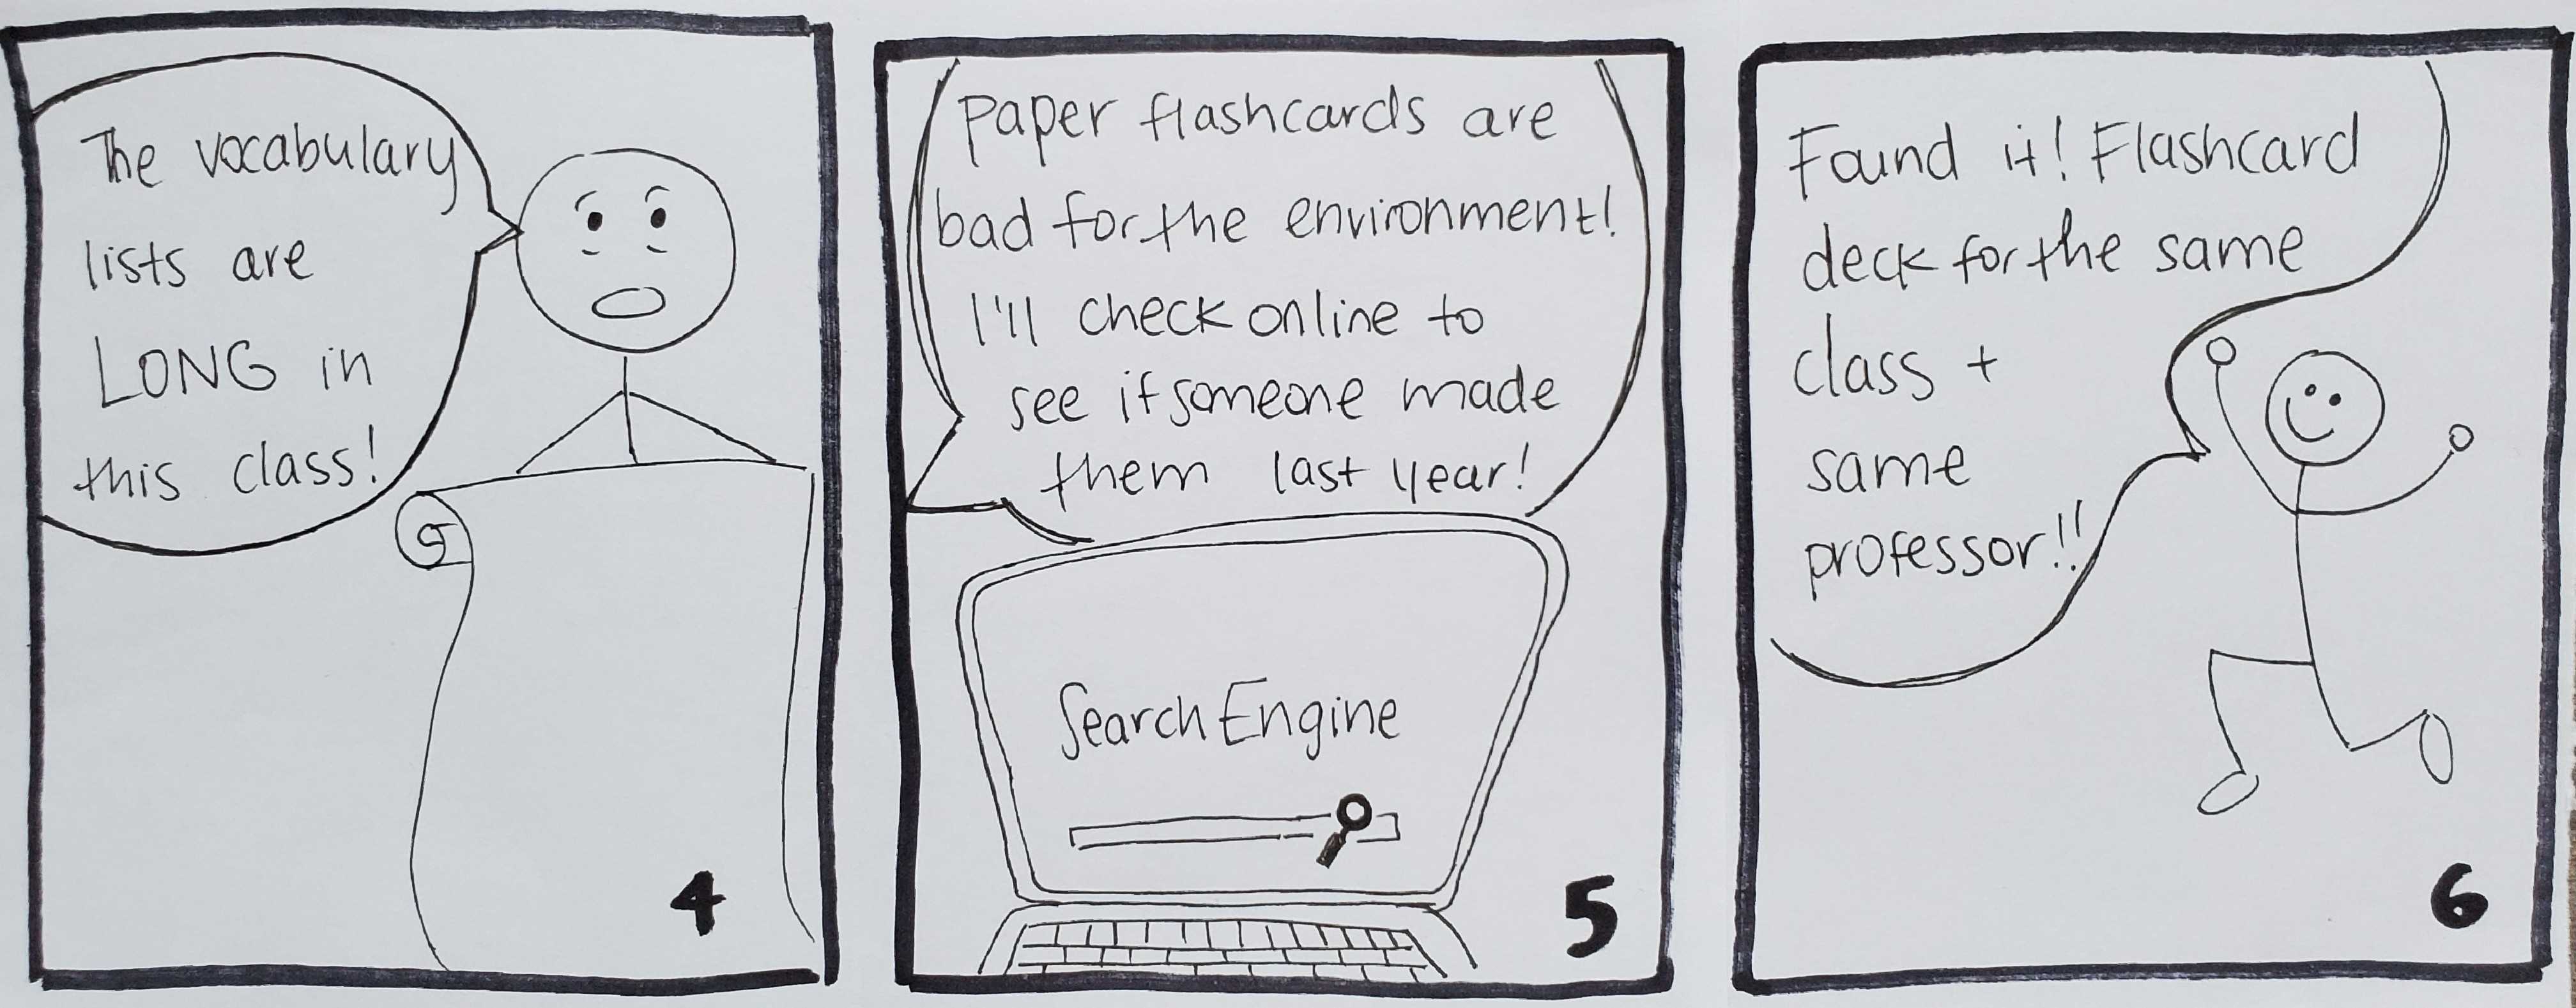 The vocabulary
lists are
LONG in
this class!
4
Paper flashcards are
bad for the environment!
I'll check online to
see if someone made
them last year!
Search Engine
5
Found it! Flashcard
deck for the same
class +
same
professor!!
6